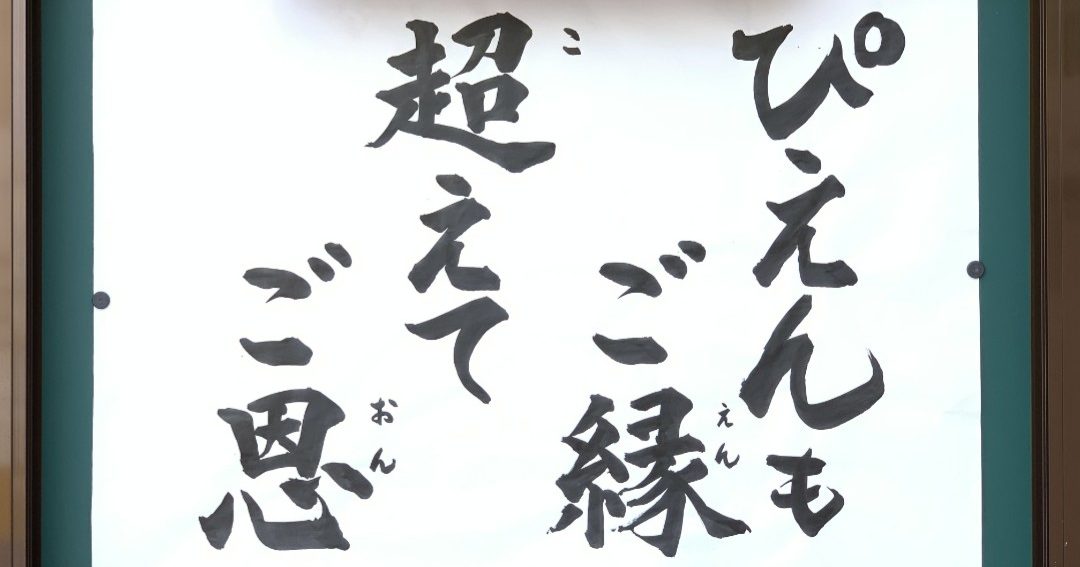 ぴえんも
ご縁
えん
超えて
こ
ご恩
おん